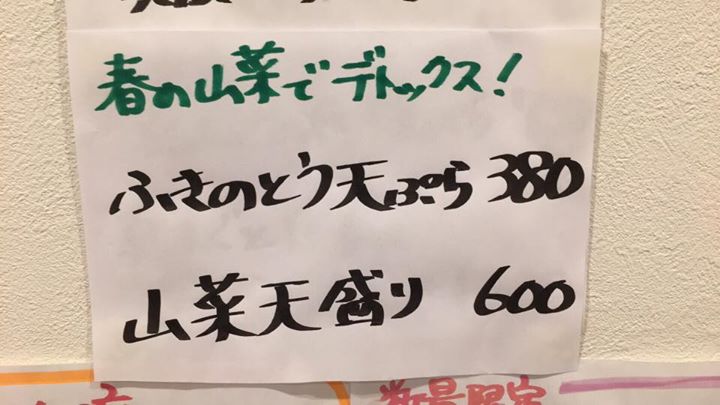 春の山菜でデトックス!
ふきのとう天ぷら 380
山菜天盛り 600
数量限定